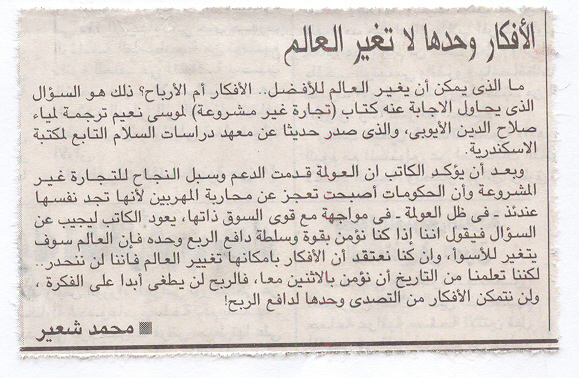 الأفكار وحدها لا تغير العالم
ما الذى يمكن أن يغير العالم للأفضل.. الأفكار أم الأرباح؟ ذلك هو السؤال
الذى يحاول الاجابة عنه كتاب (تجارة غير مشروعة) لموسى نعيم ترجمة لمياء
صلاح الدين الأيوبى، والذى صدر حديثا عن معهد دراسات السلام التابع لمكتبة
الاسكندرية.
وبعد أن يؤكد الكاتب ان العولمة قدمت الدعم وسبل النجاح للتجارة غير
المشروعة وأن الحكومات أصبحت تعجز عن محاربة المهربين لأنها تجد نفسها
عندئذ ـ فى ظل العولمة ـ فى مواجهة مع قوى السوق ذاتها، يعود الكاتب ليجيب عن
السؤال فيقول اننا إذا كنا نؤمن بقوة وسلطة دافع الربع وحده فإن العالم سوف
يتغير للأسوأ، وان كنا نعتقد أن الأفكار بامكانها تغيير العالم فاننا لن ننحدر..
لكننا تعلمنا من التاريخ أن نؤمن بالاثنين معا، فالربح لن يطغى أبدا على الفكرة ،
ولن نتمكن الأفكار من التصدى وحدها لدافع الربح!
محمد شعير